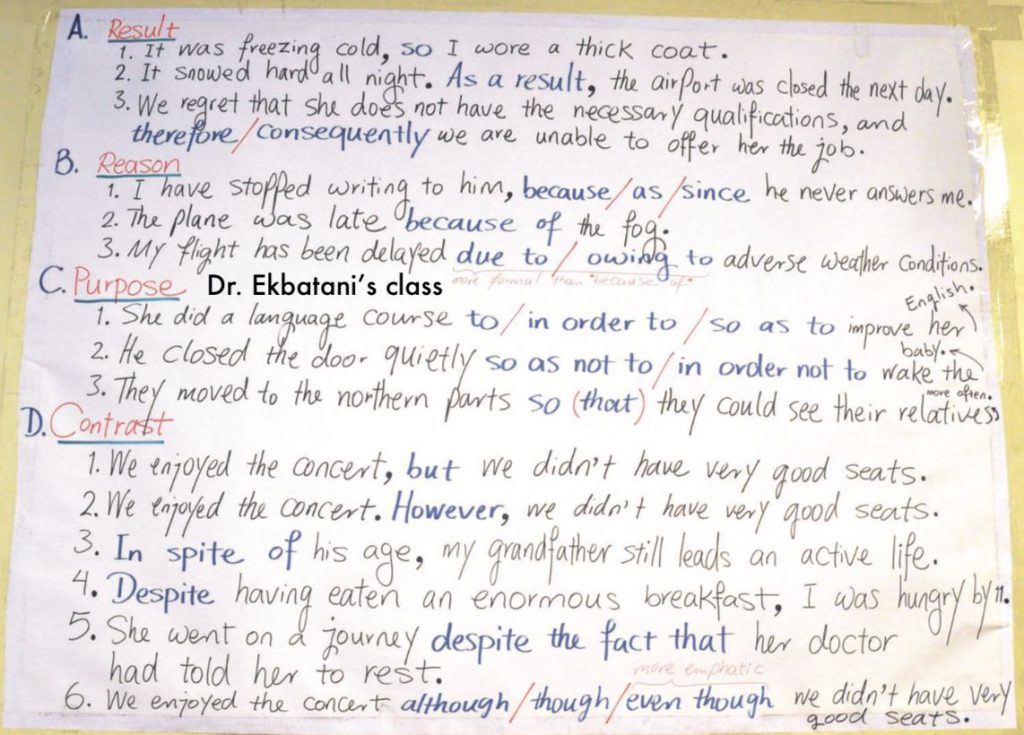 A. Result
1. It was freezing cold, so I wore a thick coat.
2. It snowed hard all night. As a result, the airport was closed the next day.
3. We regret that she does not have the necessary qualifications, and
therefore/consequently we are unable to offer her the job.
B. Reason
1. I have stopped writing to him, because/as/since he never answers me.
2. The plane was late because of the fog.
3. My flight has been delayed due to/owing to adverse weather conditions.
more formal than "because of"
C. Purpose Dr. Ekbatani's class
1. She did a language course to/in order to/so as to improve her
English.
2. He closed the door quietly so as not to/in order not to wake the
baby.
3. They moved to the northern parts so (that) they could see their relatives
more often.
D. Contrast
1. We enjoyed the concert, but we didn't have very good seats.
2. We enjoyed the concert. However, we didn't have very good seats.
3. In spite of his age, my grandfather still leads an active life.
4. Despite having eaten an enormous breakfast, I was hungry by 11.
5. She went on a journey despite the fact that her doctor
had told her to rest.
more emphatic
6. We enjoyed the concert although/though/even though we didn't have very
good seats.